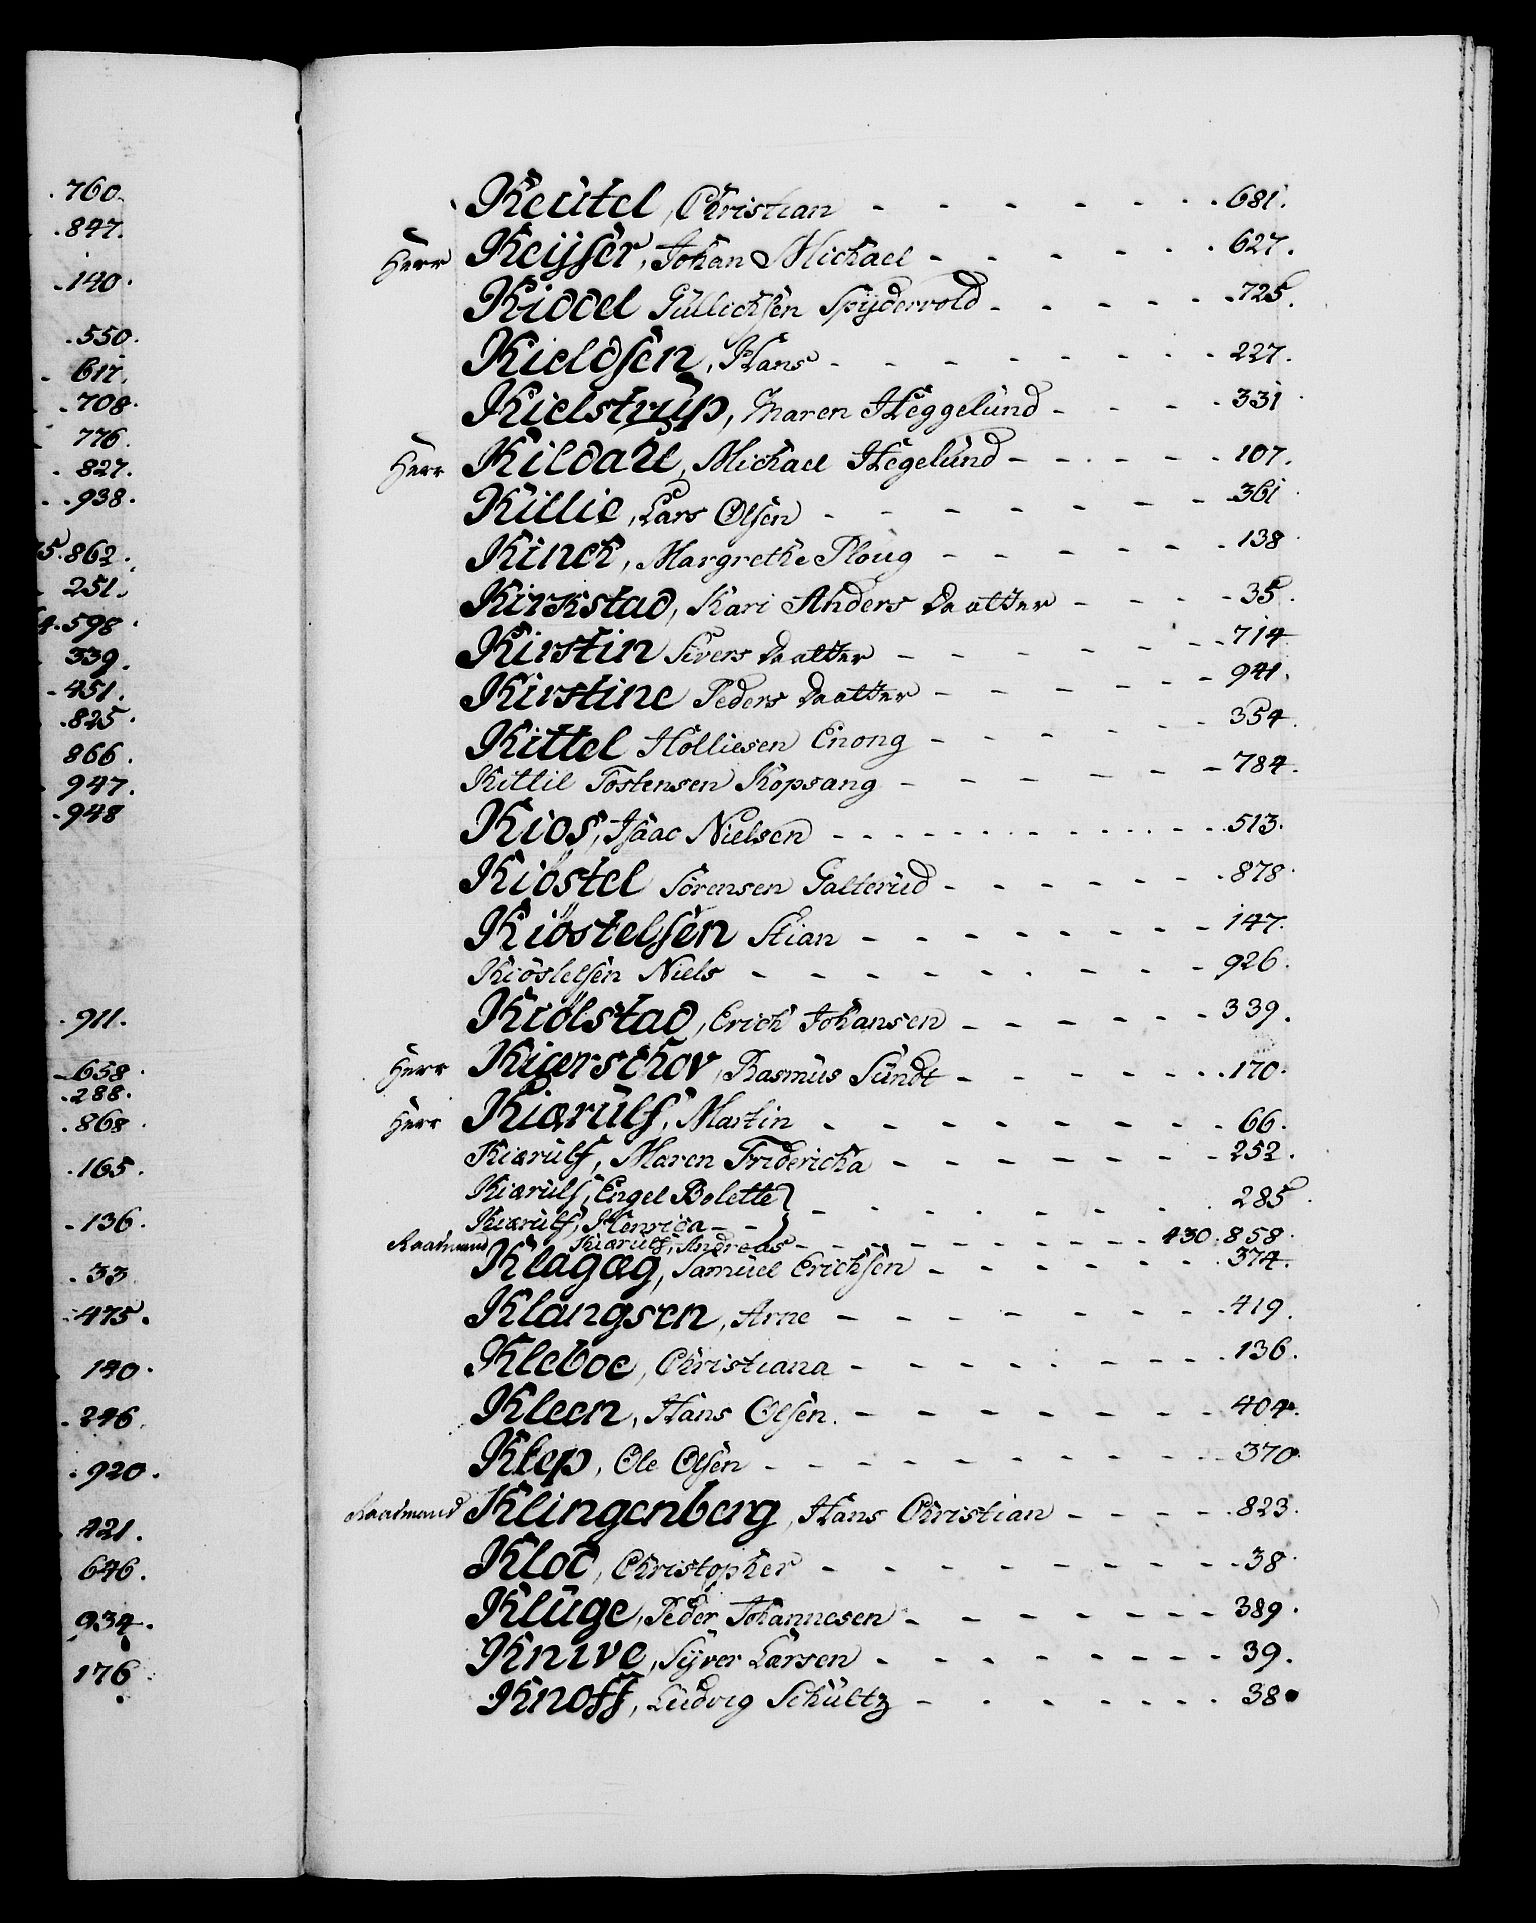 .760.
.847.
.140.
.550.
617.
.708.
776.
827.
.938.
75.862.
251.
4.598.
339.
451.
.825.
866.
947.
.948
.911.
658.
.288.
.868.
.165.
.136.
.33
.475.
140.
.246.
.920.
421.
646.
934.
176.
Keütel, Christian - - - - - - - 681.
Herr Keijser, Johan Michael - - - - - - 627.
Kiddel Gullichsen Spijdervold - - - - - 725.
Kieldsen, Hans - - - - - - - - 227.
Kielstrüp, Maren Heggelünd - - - - 331
Herr Kildall, Michael Hegelünd - - - - - 107.
Killie, Lars Olsen - - - - - - - - 361
Kinch, Margrethe Ploug - - - - - - 138
Kirkstad, Kari Anders Daatter - - - - 35.
Kirstin Sivers Daatter - - - - - - - 714
Kirstine Peders Daatter - - - - - - 941.
Kittel Holliesen Enong - - - - - - 354.
Kittil Tostensen Kopsang - - - - - - 784.
Kios, Isaac Nielsen - - - - - - - - 513.
Kiöstel Sörensen Galterüd - - - - - - 878.
Kiöstelsen Stian - - - - - - - - 147.
Kiöstelsen Niels - - - - - - - - 926.
Kiölstad, Erich Johansen - - - - - - 339.
Herr Kiærschov, Rasmüs Sündt - - - - - - 170.
Herr Kiærülf, Martin - - - - - - - - - 66.
Kiærülf, Maren Fridericha - - - - - - - 252.
Kiærülf, Engel Bolette } - - - - - - - - 285
Kiærülf, Henrica - - }
Raadmand Kiærülf, Andreas - - - - - - - - 430.858.
Klagæg, Samüel Erichsen - - - - - - 374.
Klangsen, Arne - - - - - - - - 419.
Kleboe, Christiana - - - - - - - - 136.
Kleen, Hans Olsen. - - - - - - - - 404.
Klep, Ole Olsen - - - - - - - - - 370
Raadmand Klingenberg, Hans Christian - - - - 823.
Klod, Christopher - - - - - - - - 38.
Klüge, Peder Johannesen - - - - - - - 389.
Knive, Sÿver Larsen - - - - - - - - 39.
Knoff, Ludvig Schültz - - - - - - - 38.